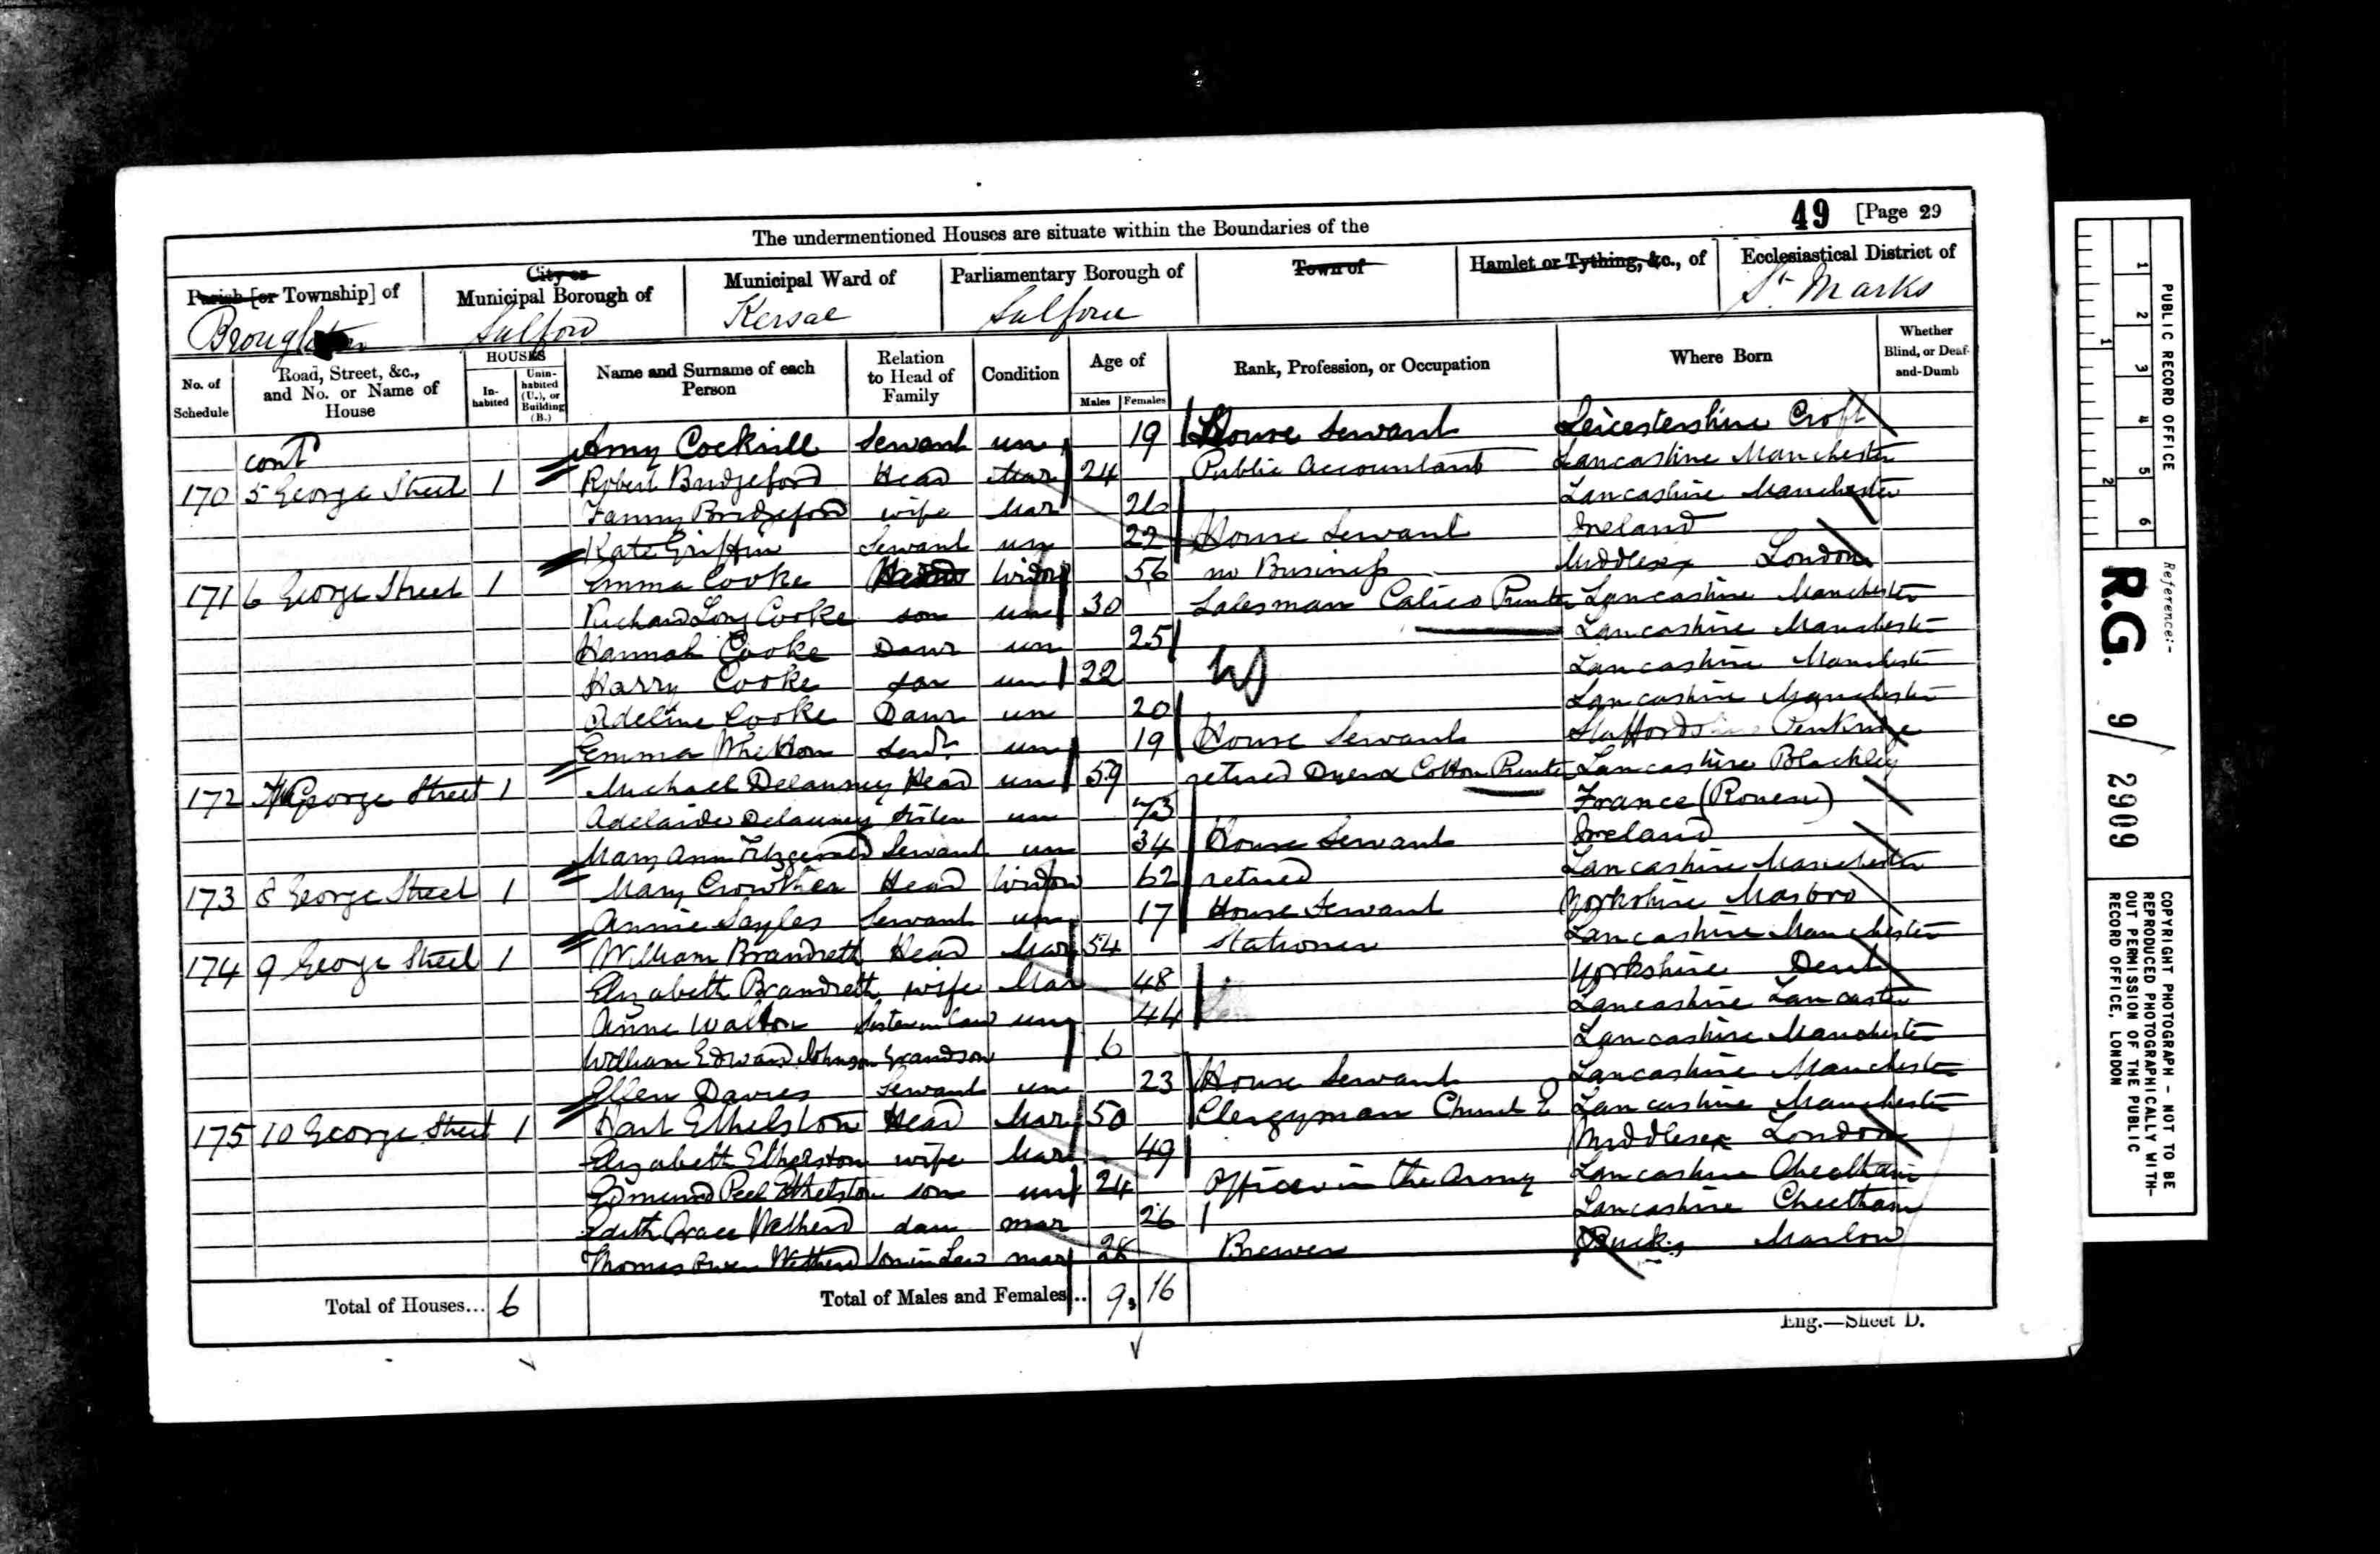 49 [Page 29
The undermentioned Houses are situate within the Boundaries of the
Parish [or Township] of
City or
Municipal Borough of
Municipal Ward of
Parliamentary Borough of
Town of
Hamlet or Tything, &c., of
Ecclesiastical District of
Broughton
Salford
Kersal
Salford
St Marks
No. of Schedule
Road, Street, &c., and No. or Name of House
HOUSES
In-habited
Unin-habited (U.), or Building (B.)
Name and Surname of each Person
Relation to Head of Family
Condition
Age of
Males Females
Rank, Profession, or Occupation
Where Born
Whether Blind, or Deaf-and-Dumb
cont Amy Cockrill Servant un 19 House Servant Leicestershire Croft
170 5 George Street 1 Robert Bridgeford Head Mar 24 Public Accountant Lancashire Manchester
Fanny Bridgeford wife Mar Lancashire Manchester
Kate Griffin Servant un 22 House Servant Ireland
171 6 George Street 1 Emma Cooke Head Widow 56 no Business Middlesex London
Richard Long Cooke son un 30 Salesman Calico Printer Lancashire Manchester
Hannah Cooke Daur un 25 Lancashire Manchester
Harry Cooke son un 22 Lancashire Manchester
Adeline Cooke Daur un 20 Lancashire Manchester
Emma Whetton Servt un 19 House Servant Staffordshire Penkridge
172 7 George Street 1 Michael Delauney Head un 59 retired Dyer & Cotton Printer Lancashire Blackley
Adelaide Delauney Sister un 73 France (Rouen)
Mary Ann Fitzgerald Servant un 34 House Servant Ireland
173 8 George Street 1 Mary Crowther Head Widow 62 retired Lancashire Manchester
Annie Sayles Servant un 17 House Servant Yorkshire Masbro
174 9 George Street 1 William Brandreth Head Mar 54 Stationer Lancashire Manchester
Elizabeth Brandreth wife Mar 48 Yorkshire Dent
Anne Walton Sister in Law un 44 Lancashire Lancaster
William Edward Johnson Grandson 6 Lancashire Manchester
Ellen Davies Servant un 23 House Servant Lancashire Manchester
175 10 George Street 1 Hart Ethelston Head Mar 50 Clergyman Church E Lancashire Manchester
Elizabeth Ethelston wife Mar 49 Middlesex London
Edmund Peel Ethelston son un 24 Officer in the Army Lancashire Cheetham
Edith Grace Wethered dau mar 26 Lancashire Cheetham
Thomas Owen Wethered Son in Law mar 28 Brewer Bucks Marlow
Total of Houses... 6
Total of Males and Females... 9 16
Eng.—Sheet D.
PUBLIC RECORD OFFICE
1 2 3 4 5 6
1 2
Reference:-
R.G. 9/2909
COPYRIGHT PHOTOGRAPH - NOT TO BE REPRODUCED PHOTOGRAPHICALLY WITH-OUT PERMISSION OF THE PUBLIC RECORD OFFICE, LONDON